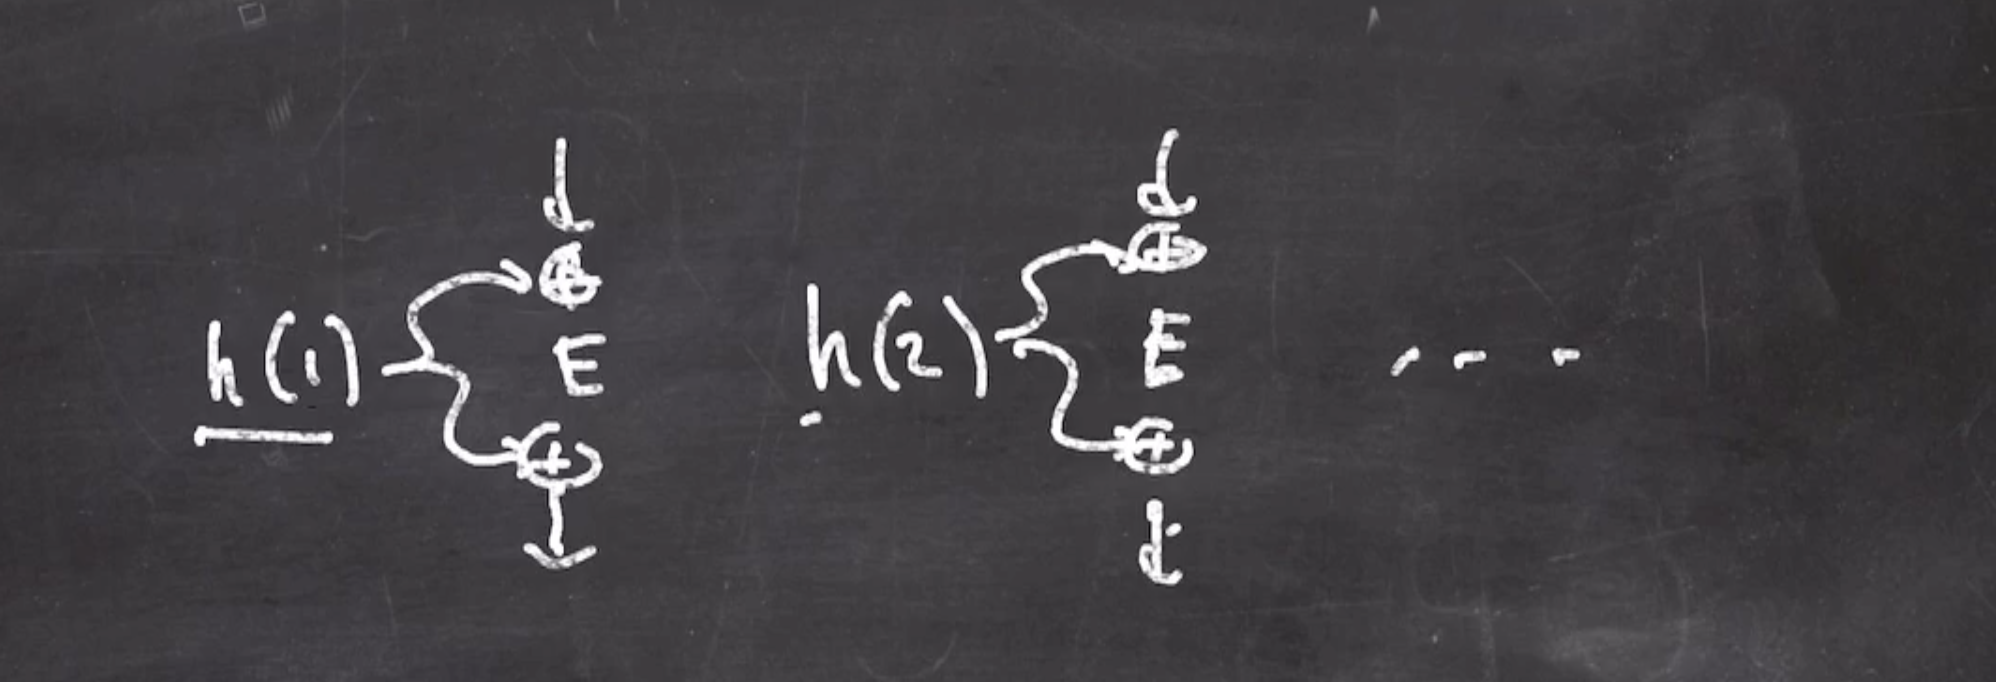 h(1) ⊕ E ⊕
h(2) ⊕ E ⊕
...